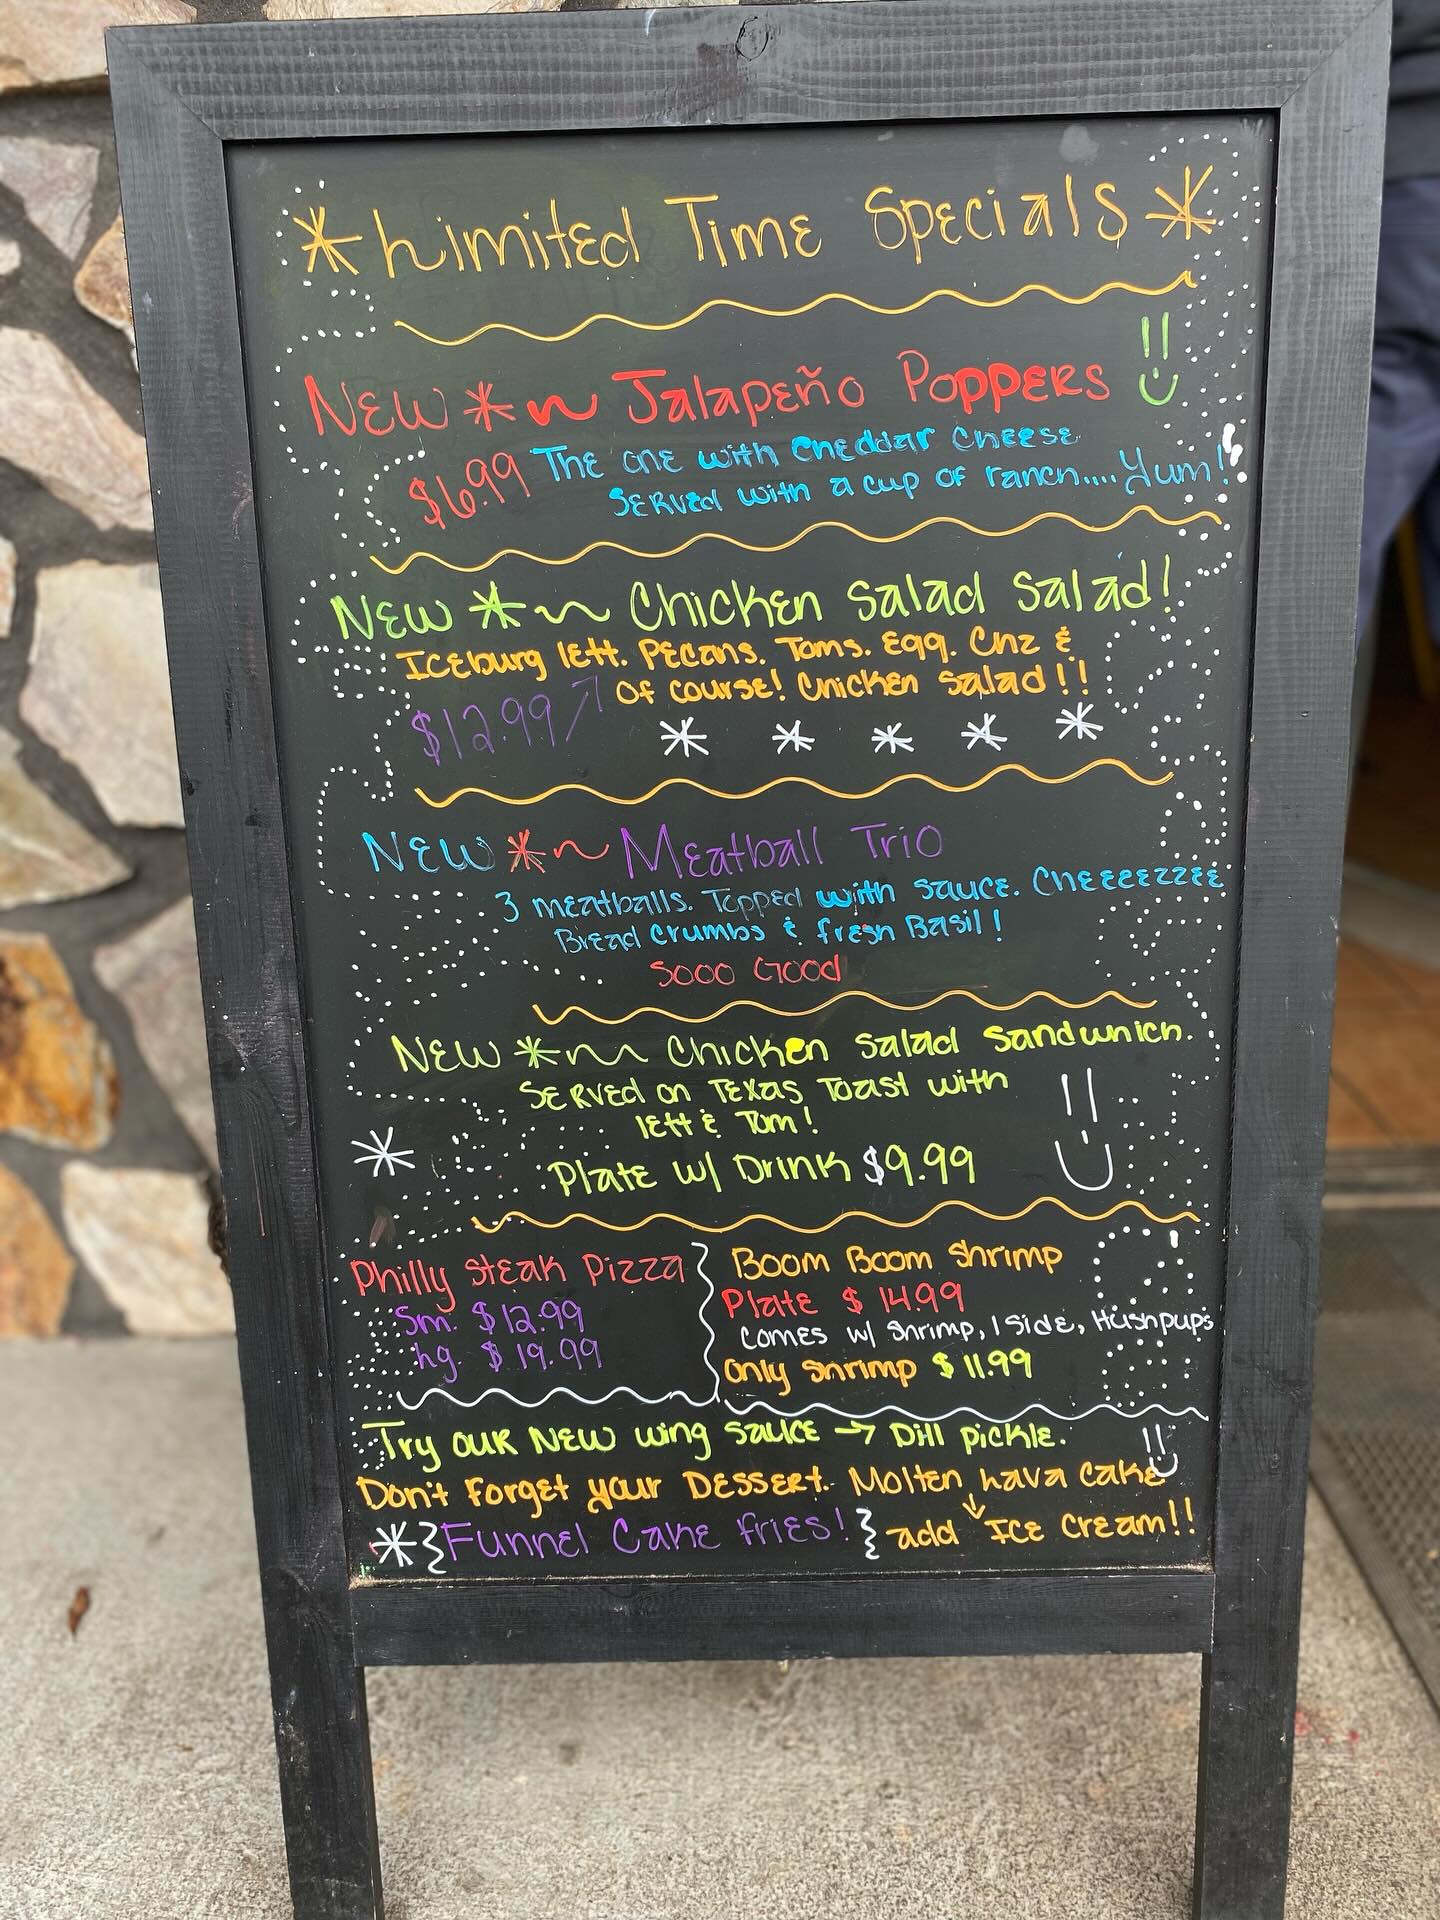 * Limited Time Specials *
New *~ Jalapeño Poppers
$6.99 The one with cheddar cheese
served with a cup of ranch.... Yum!
New *~ Chicken Salad Salad!
Iceburg lett. Pecans. Toms. Egg. Chz &
$12.99 of course! Chicken Salad!!
* * * * *
New *~ Meatball Trio
3 meatballs. Topped with sauce. Cheeeezzee
Bread crumbs & fresh Basil!
Sooo Good
New *~ Chicken Salad Sandwhich.
Served on Texas Toast with
lett & Tom!
*
Plate w/ Drink $9.99
Philly Steak Pizza
Sm. $12.99
Lg. $19.99
Boom Boom Shrimp
Plate $14.99
comes w/ shrimp, 1 side, Hushpups
only shrimp $11.99
Try our New wing sauce → Dill pickle.
Don't forget your Dessert. Molten Lava Cake
* Funnel Cake fries! add Ice Cream!!